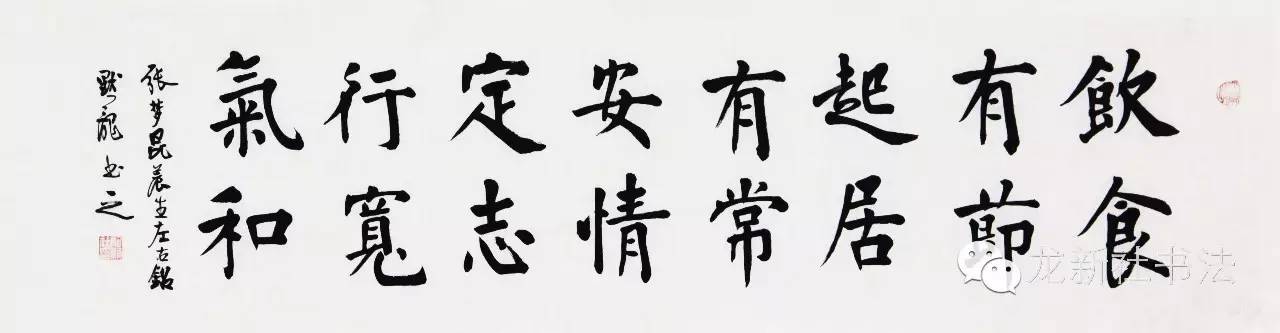 飲食
有節
起居
有常
安情
定志
行寬
氣和
張夢昆養生左右銘
默龍书之
龙新社书法